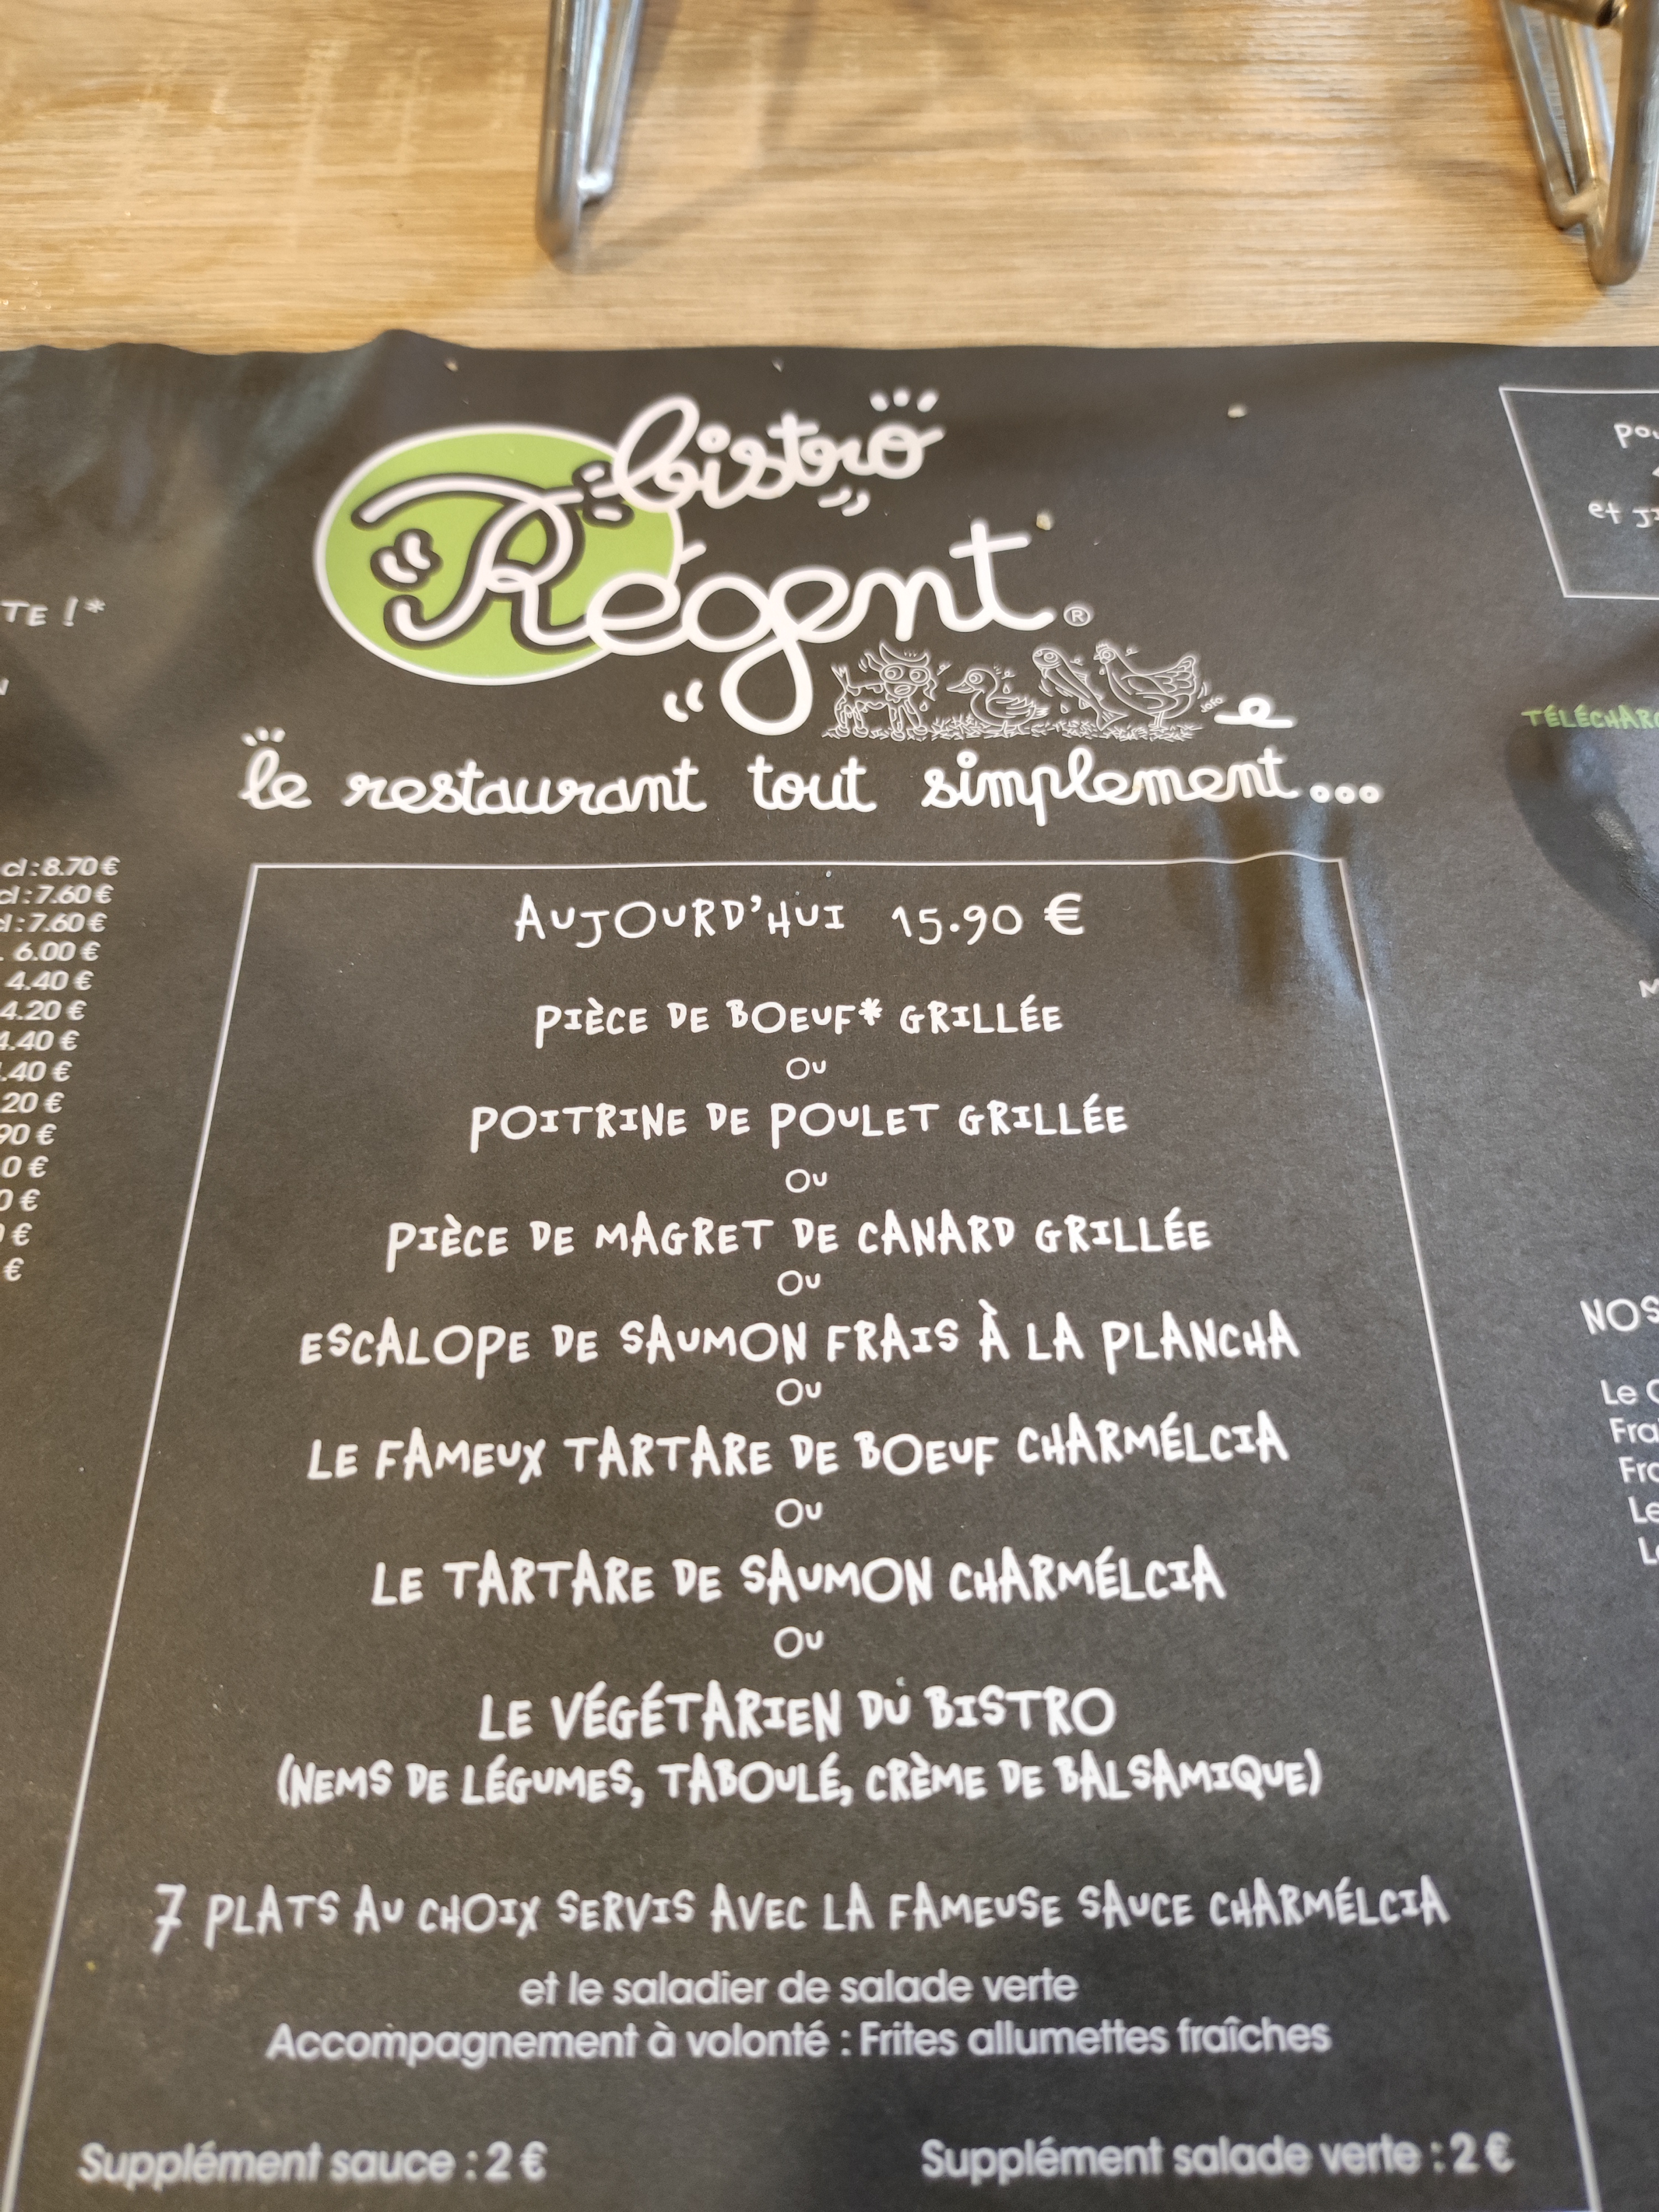 bistro
Régent®
le restaurant tout simplement...
TE !*
cl : 8.70 €
cl : 7.60 €
cl : 7.60 €
6.00 €
4.40 €
4.20 €
4.40 €
.40 €
20 €
90 €
0 €
0 €
€
€
AUJOURD'HUI 15.90 €
PIÈCE DE BOEUF* GRILLÉE
OU
POITRINE DE POULET GRILLÉE
OU
PIÈCE DE MAGRET DE CANARD GRILLÉE
OU
ESCALOPE DE SAUMON FRAIS À LA PLANCHA
OU
LE FAMEUX TARTARE DE BOEUF CHARMÉLCIA
OU
LE TARTARE DE SAUMON CHARMÉLCIA
OU
LE VÉGÉTARIEN DU BISTRO
(NEMS DE LÉGUMES, TABOULÉ, CRÈME DE BALSAMIQUE)
7 PLATS AU CHOIX SERVIS AVEC LA FAMEUSE SAUCE CHARMÉLCIA
et le saladier de salade verte
Accompagnement à volonté : Frites allumettes fraîches
Supplément sauce : 2 €
Supplément salade verte : 2 €
et
TÉLÉCHAR
NOS
Le
Fra
Le